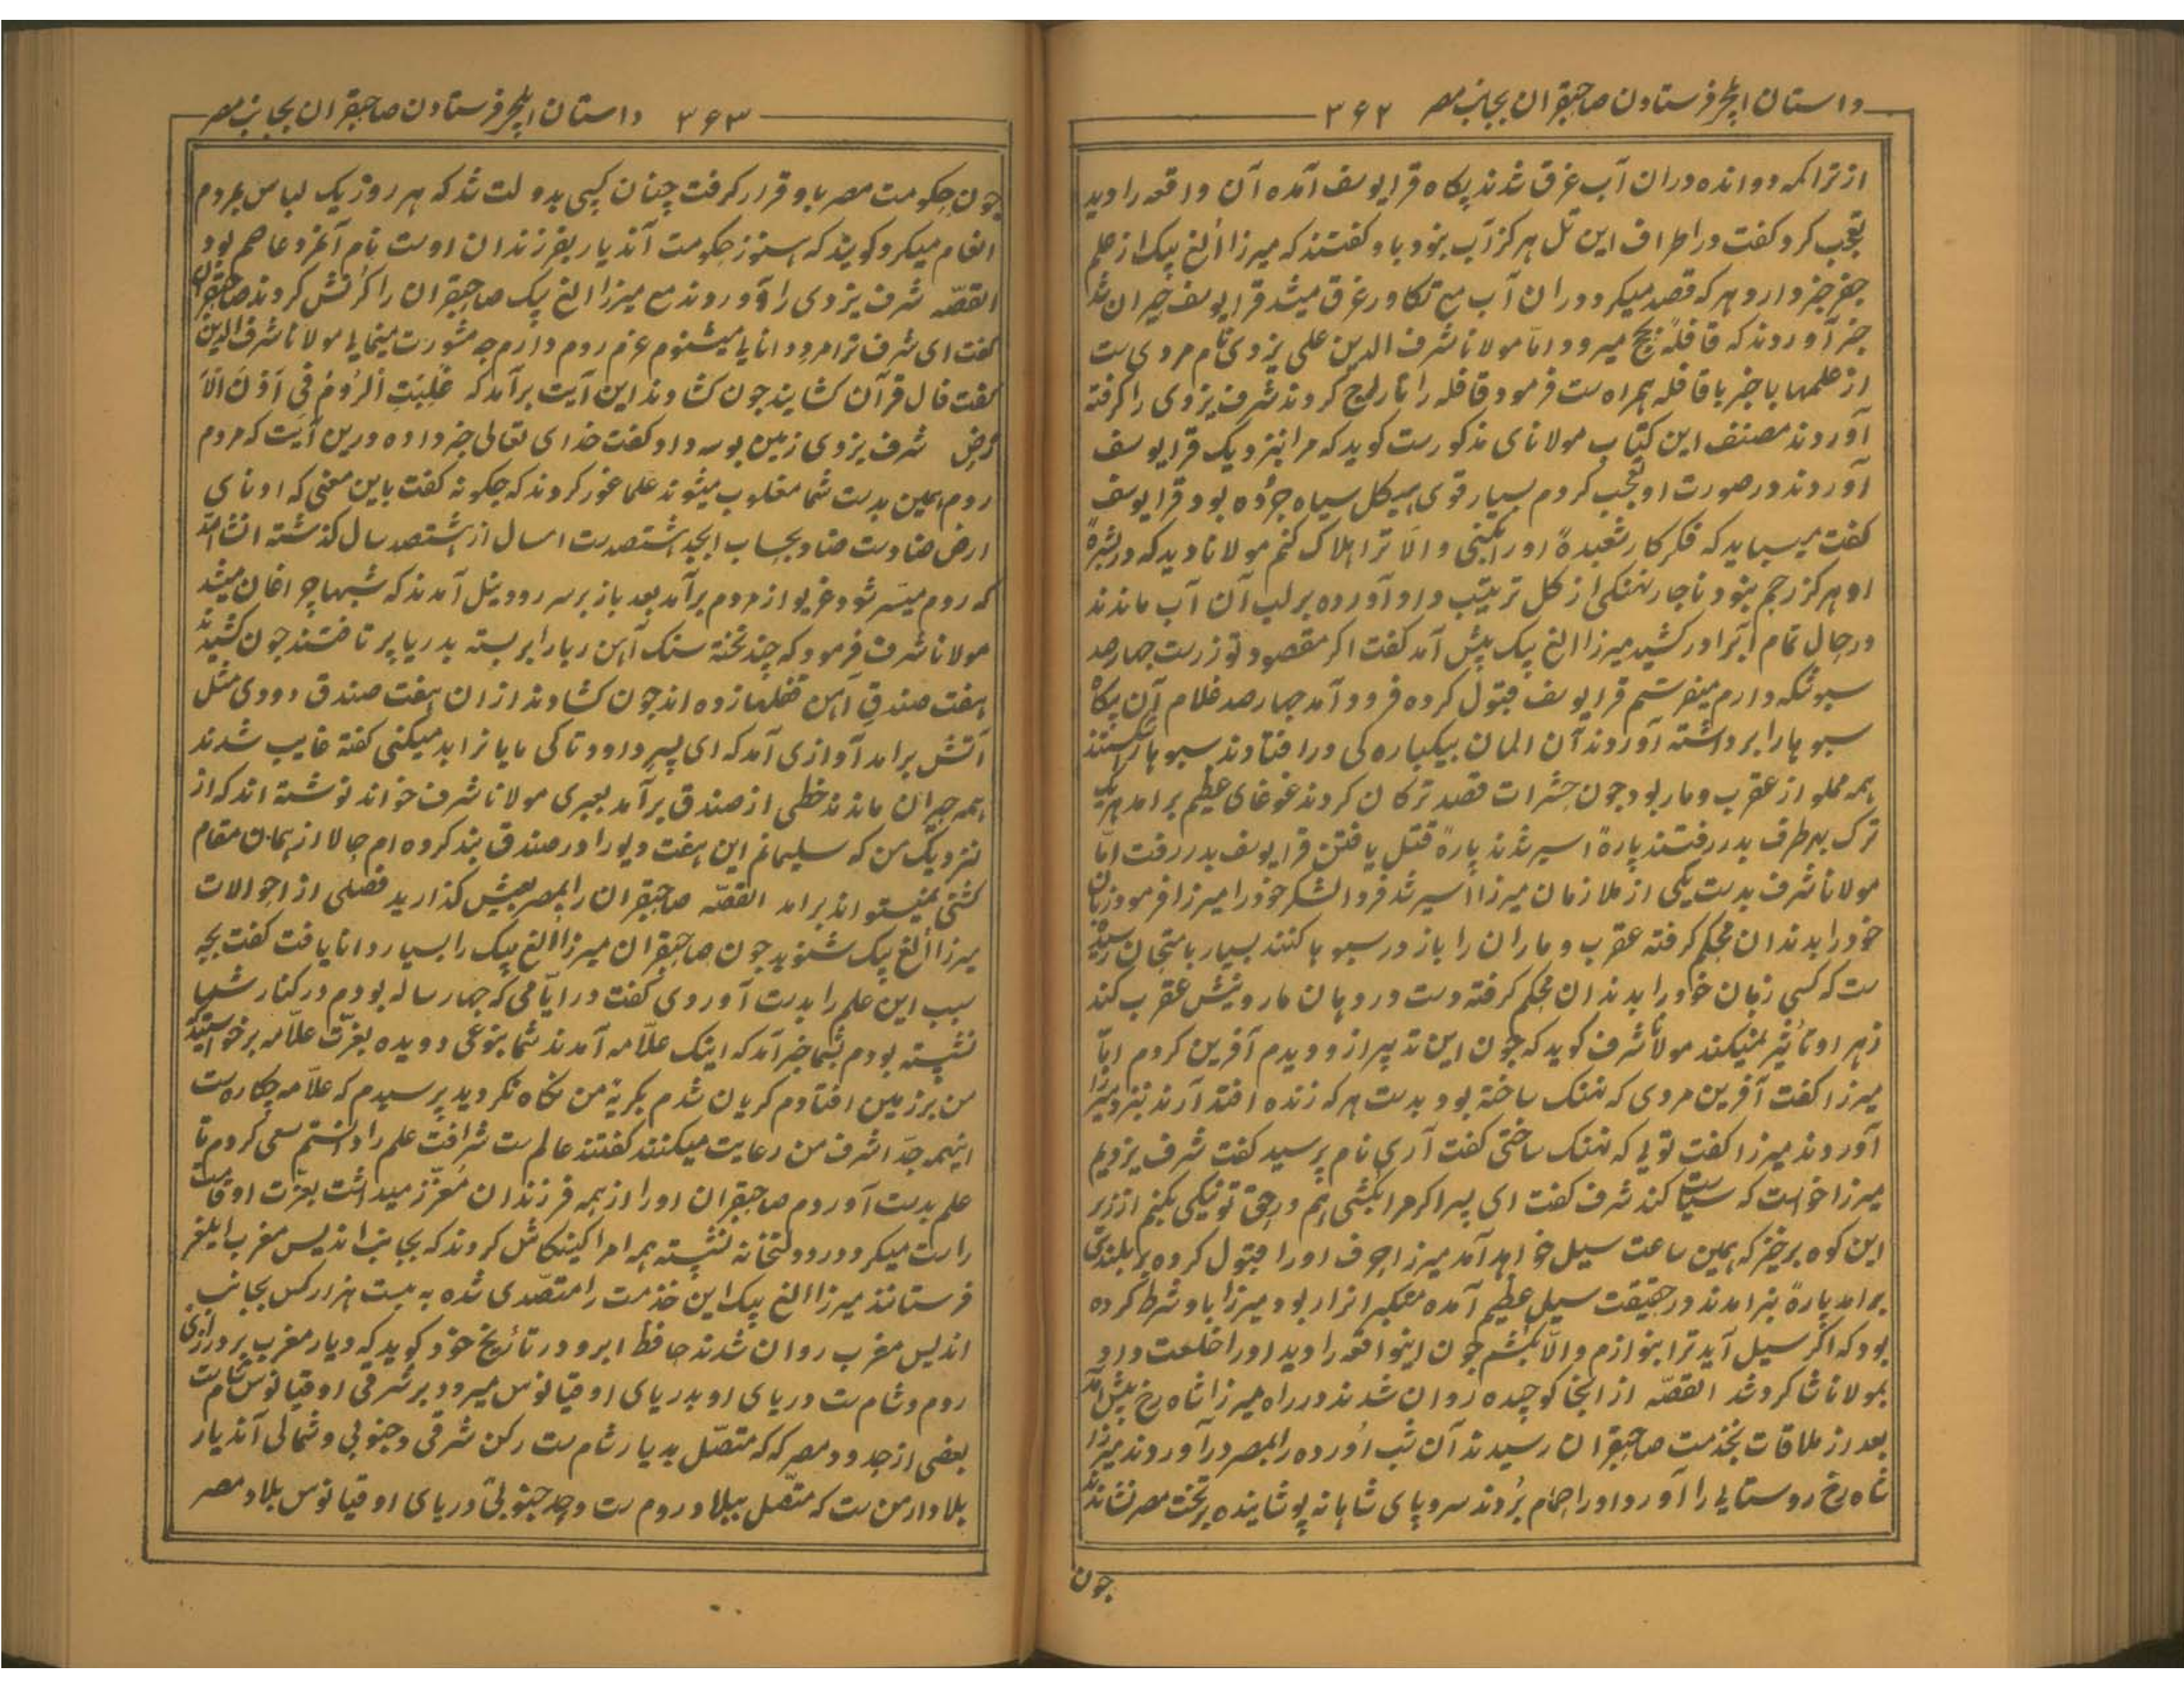 داستان ایلچی فرستادن صاحبقران بجانب مصر ۳۶۲
از تراکمه دوانده دران آب غرق شدند پکاه قرا یوسف آمده آن واقعه را دید
تعجب کرد و گفت در اطراف این تل هرکز آب نبود باو کفتند که میرزا الغ بیک از علم
جفر خبر دارد هر که قصد میکرد دران آب مع تکاور غرق میشد قرا یوسف حیران شد
خبر آوردند که قافلهٔ بحج میرود اما مولانا شرف الدین علی یزدی نام مردی ست
از علمها با خبر با قافله همراه ست فرمود قافله را تاراج کردند شرف یزدی را کرفته
آوردند مصنف این کتاب مولانای مذکورست کوید که مرا نزدیک قرا یوسف
آوردند در صورت او تعجب کردم بسیار قوی هیکل سیاه چرده بود قرا یوسف
کفت میباید که فکر کار شعبدهٔ اورا بکنی والا ترا هلاک کنم مولانا دید که در بشرهٔ
او هرکز رحم نبود ناچار نهنکی از کل ترتیب داد آورده بر لب آن آب ماندند
در حال تمام آبرا در کشید میرزا الغ بیک پیش آمد کفت اکر مقصود تو زرست چهار صد
سبو تنکه دارم میفرستم قرا یوسف قبول کرده فرود آمد چهار صد غلام آن پکاه
سبو هارا برداشته آوردند آن المان بیکباره کی درافتادند سبو ها را شکستند
همه مملو از عقرب و مار بود چون حشرات قصد ترکان کردند غوغای عظیم برآمد هر یک
ترک بهر طرف بدر رفتند پارهٔ اسیر شدند پارهٔ قتل یافتن قرا یوسف بدر رفت اما
مولانا شرف بدست یکی از ملازمان میرزا اسیر شد فردا لشکر خود را میرزا فرمود زبان
خود را بدندان محکم کرفته عقرب و ماران را باز در سبو ها کنند بسیار بامتحان رسیده
ست که کسی زبان خود را بدندان محکم کرفته دست در دهان مار و نیش عقرب کند
زهر او تأثیر نمیکند مولانا شرف کوید که چون این تدبیر ازو دیدم آفرین کردم اما
میرزا کفت آفرین مردی که نهنک ساخته بود بدست هر که زنده افتد آرند نزد میرزا
آوردند میرزا کفت تویی که نهنک ساختی کفت آری نام پرسید کفت شرف یزدیم
میرزا خواست که سیاست کند شرف کفت ای پسر اکر مرا بکشی هم در حق تو نیکی بکنم از زیر
این کوه برخیز که همین ساعت سیل خواهد آمد میرزا حرف اورا قبول کرده بر بلندی
برآمد پارهٔ برآمدند در حقیقت سیل عظیم آمده معکبر انزار بود میرزا باو شرط کرده
بود که اکر سیل آید ترا بنوازم والا بکشم چون اینواقعه را دید اورا خلعت داد
بمولانا شاکرد شد القصه از انجا کوچیده روان شدند در راه میرزا شاه رخ پیش آمد
بعد از ملاقات بخدمت صاحبقران رسیدند آن شب آورده رابمصر درآوردند میرزا
شاه رخ روستایی را آورد اورا حمام بردند سروپای شاهانه پوشانیده بر تخت مصر نشاندند
چون
داستان ایلچی فرستادن صاحبقران بجانب مصر ۳۶۳
چون حکومت مصر باو قرار کرفت چنان کسی بدولت شد که هر روز یک لباس بمردم
انعام میکرد کویند که هنوز حکومت آندیار بفرزندان اوست نام آنمرد عاصم بود
القصه شرف یزدی را آوردند مع میرزا الغ بیک صاحبقران را کرنش کردند صاحبقران
کفت ای شرف ترا مرد دانایا میشنوم عزم روم دارم چه مشورت مینمایی مولانا شرف الدین
کفت فال قرآن کشایند چون کشادند این آیت برآمد که غُلِبَتِ الرُّومُ فِی أَدْنَی الْأَ
رْضِ شرف یزدی زمین بوسه داد و کفت خدای تعالی خبر داده درین آیت که مردم
روم همین بدست شما مغلوب میشوند علما غور کردند که چکونه کفت باین معنی که ادنای
ارض ضادست ضاد بحساب ابجد هشتصدست امسال از هشتصد سال کذشته انشاالله
که روم میسر شود غریو از مردم برآمد بعد باز بر سر رود نیل آمدند که شبها چراغان میشد
مولانا شرف فرمود که چند تخته سنک آهن ربارا بر بسته بدریا پرتافتند چون کشیدند
هفت صندق آهن قفلها زده اند چون کشادند ازان هفت صندق دودی مثل
آتش برآمد آوازی آمد که ای پسر داود تا کی مایانرا بد میکنی کفته غایب شدند
همه حیران ماندند خطی از صندق برآمد بعبری مولانا شرف خواند نوشته اند که از
نزدیک من که سلیمانم این هفت دیو را در صندق بند کرده ام حالا از همان مقام
کشتی نمیتواند برآمد القصه صاحبقران رابمصر بعیش کذارید فصلی از احوالات
میرزا الغ بیک شنوید چون صاحبقران میرزا الغ بیک را بسیار دانا یافت کفت بچه
سبب این علم را بدست آوردی کفت در ایامی که چهار ساله بودم در کنار شما
نشسته بودم بشما خبر آمد که اینک علامه آمدند شما بنوعی دویده بعزت علامه برخواستید
من بر زمین افتادم کریان شدم بکریهٔ من نکاه نکردید پرسیدم که علامه چکاره ست
اینهمه جد اشرف من رعایت میکنند کفتند عالم ست شرافت علم را دانستم سعی کردم تا
علم بدست آوردم صاحبقران اورا از همه فرزندان معزز میداشت بعزت اوقات
راست میکرد در دولتخانه نشسته همه امرا کینکاش کردند که بجانب اندیس مغرب ایلغر
فرستانند میرزا الغ بیک این خذمت را متصدی شده به بیست هزار کس بجانب
اندیس مغرب روان شدند حافظ ابرو در تأریخ خود کوید که دیار مغرب بر درازی
روم و شام ست دریای او بدریای اوقیانوس میرود بر شرقی اوقیانوس شام ست
بعضی از حدود مصر که که متصل بدیار شام ست رکن شرقی و جنوبی و شمالی آندیار
بلاد ارمن ست که متصل ببلاد روم ست و حد جنوبی دریای اوقیانوس بلاد مصر